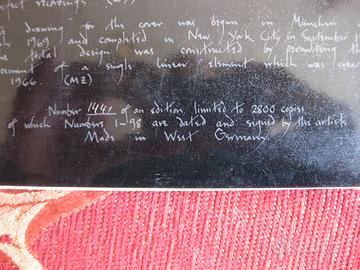 recordings.
drawing for the cover was begun in München
1969 and completed in New York City in September
total design was constructed by permuting
of a single linear element which was
1966. (MZ)
Number 1441 of an edition limited to 2800 copies
of which Numbers 1-98 are dated and signed by the artists
Made in West Germany